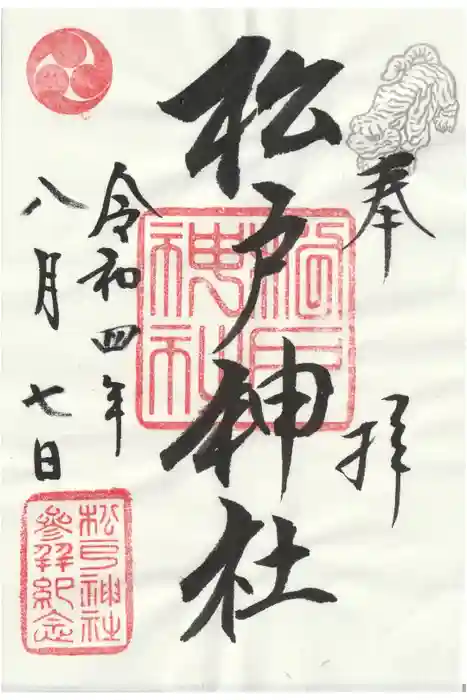 奉拝
松戸神社
松戸神社
令和四年
八月七日
松戸神社
參拜紀念